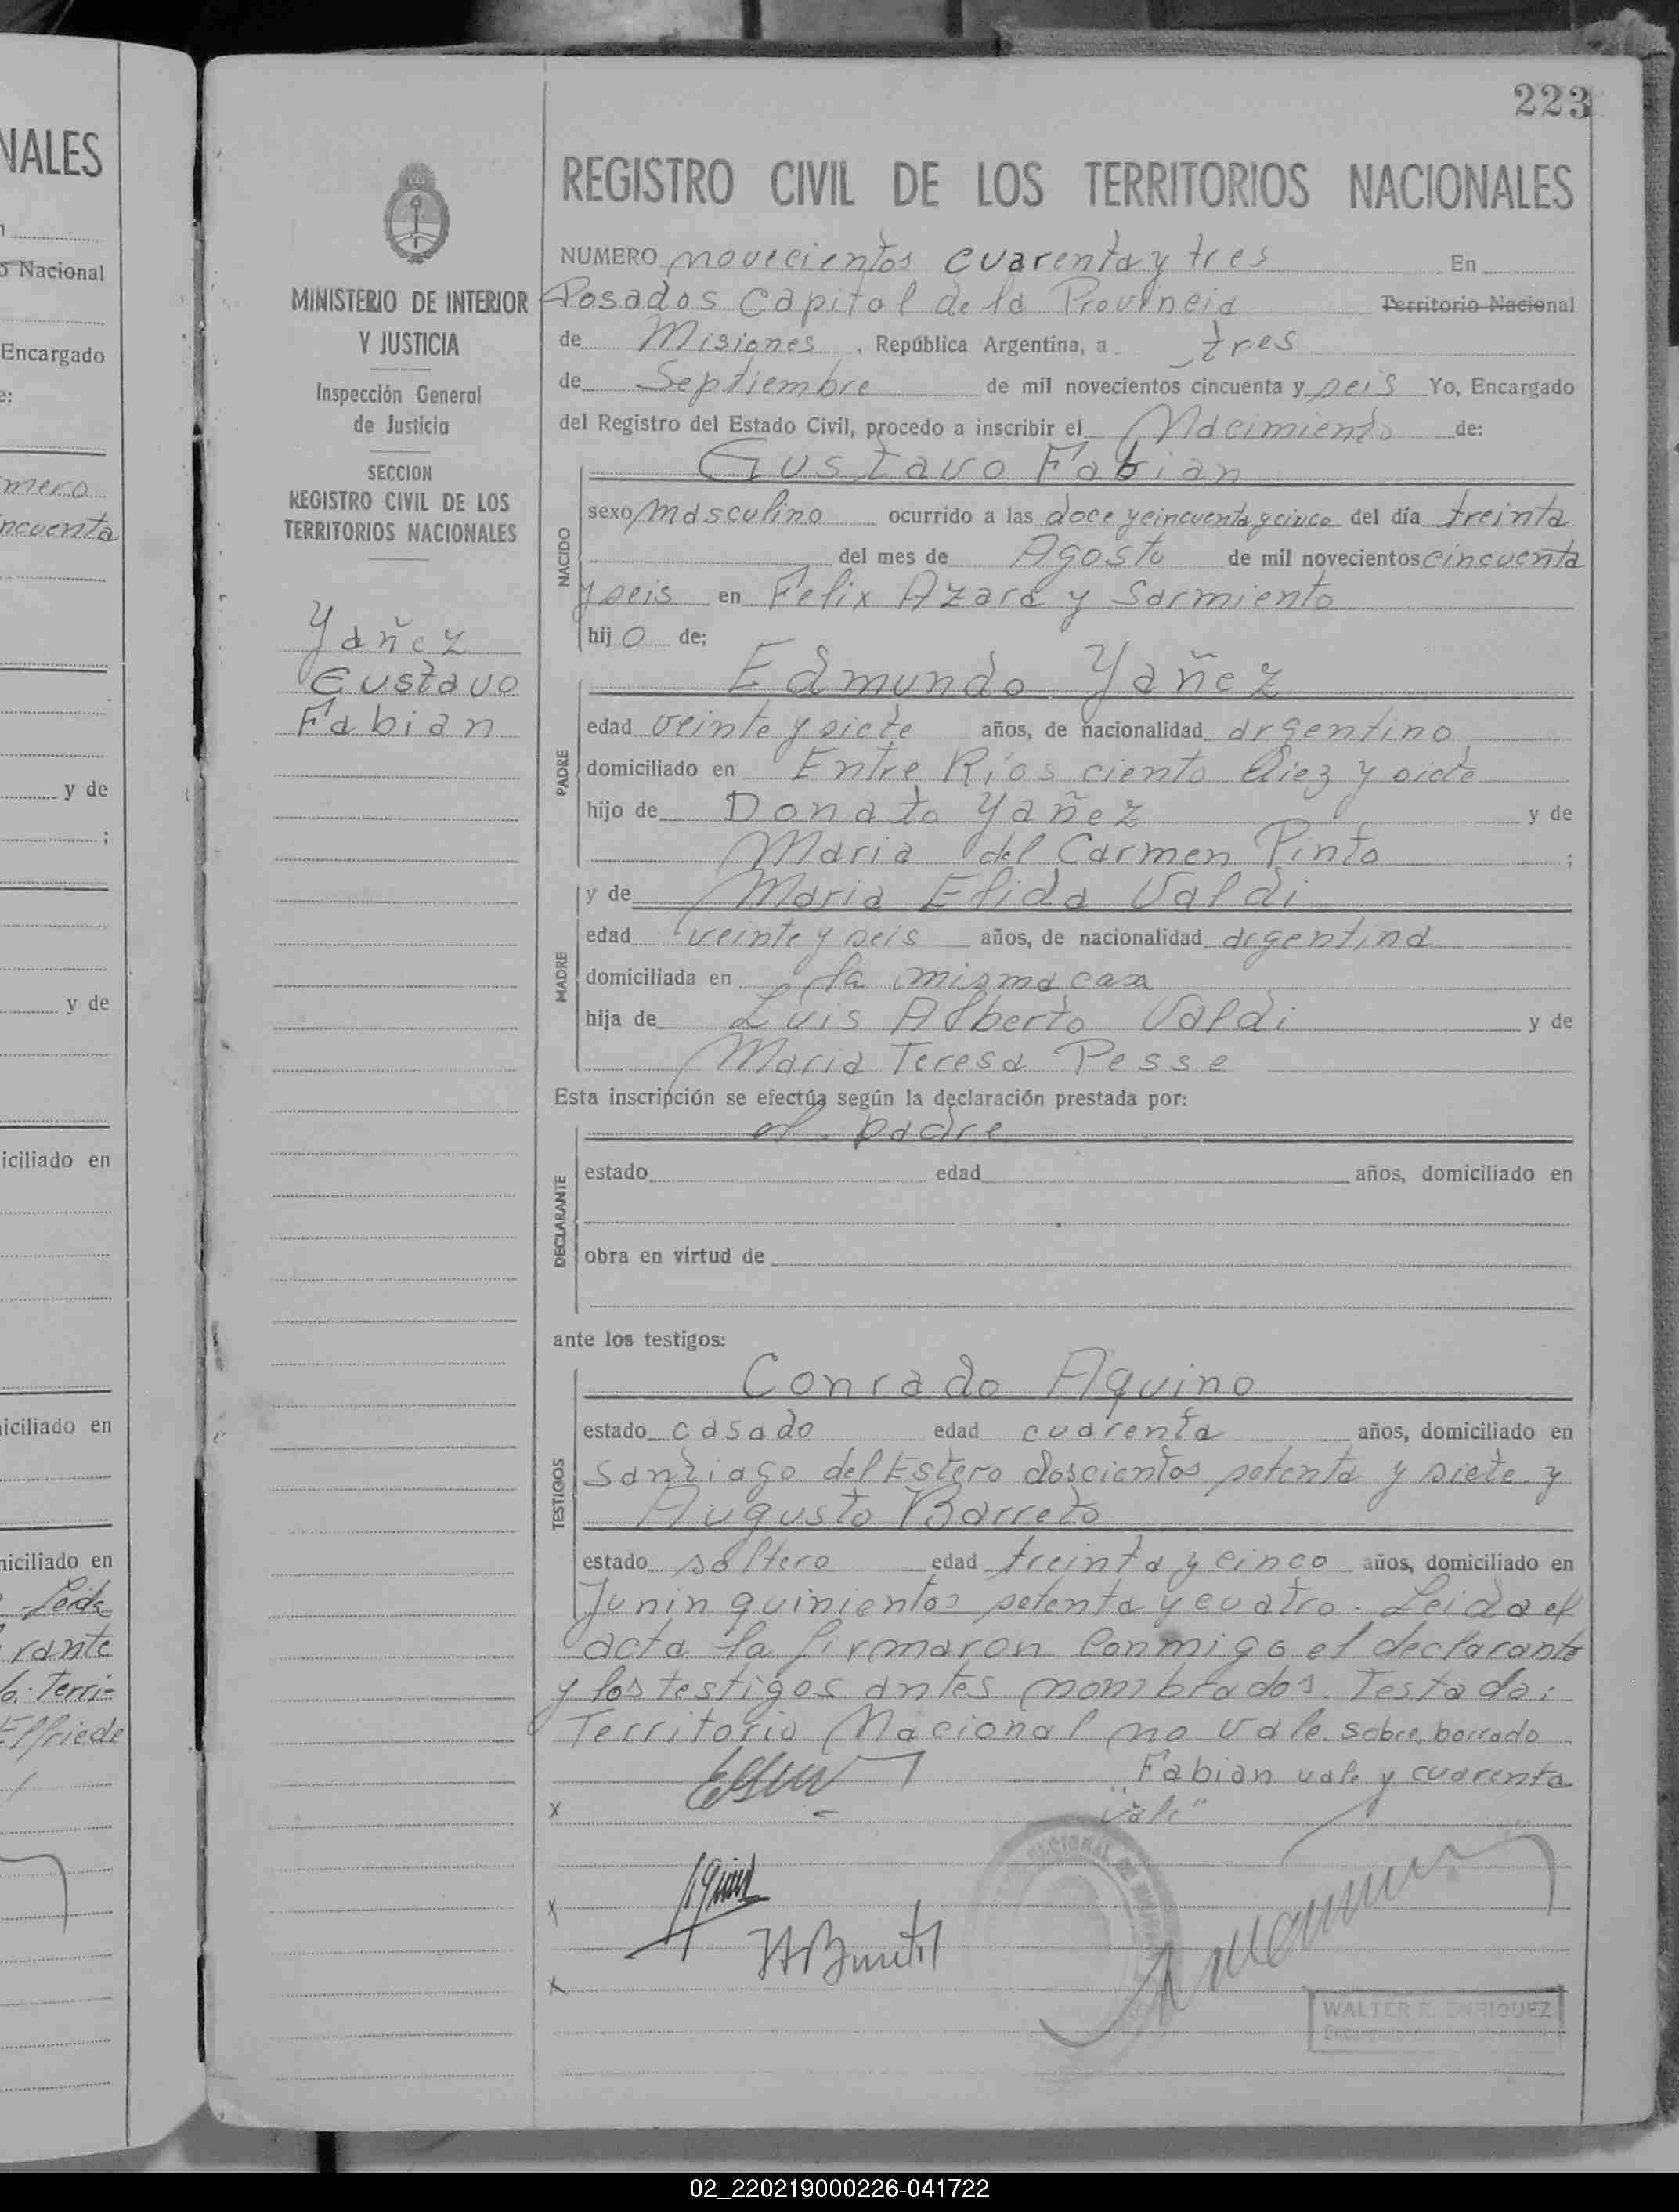 223
NALES
o Nacional
Encargado
e:
mero
ncuenta
y de
;
y de
iciliado en
iciliado en
niciliado en
Leida
rante
Terri=
Elfriede
MINISTERIO DE INTERIOR
Y JUSTICIA
Inspección General
de Justicia
SECCION
REGISTRO CIVIL DE LOS
TERRITORIOS NACIONALES
Yañez
Gustavo
Fabian
REGISTRO CIVIL DE LOS TERRITORIOS NACIONALES
NUMERO novecientos cuarenta y tres En
Posadas Capital de la Provincia Territorio Nacional
de Misiones, República Argentina, a tres
de Septiembre de mil novecientos cincuenta y seis Yo, Encargado
del Registro del Estado Civil, procedo a inscribir el Nacimiento de:
NACIDO
Gustavo Fabian
sexo masculino ocurrido a las doce y cincuenta y cinco del día treinta
del mes de Agosto de mil novecientos cincuenta
y seis en Felix Azara y Sarmiento
hijo de;
PADRE
Edmundo Yañez
edad veinte y siete años, de nacionalidad argentino,
domiciliado en Entre Ríos ciento diez y siete
hijo de Donato Yañez y de
Maria del Carmen Pinto ;
MADRE
y de Maria Elida Valdi
edad veinte y seis años, de nacionalidad argentina
domiciliada en la misma casa
hija de Luis Alberto Valdi y de
Maria Teresa Pesse
Esta inscripción se efectúa según la declaración prestada por:
DECLARANTE
el padre
estado edad años, domiciliado en
obra en virtud de
ante los testigos:
TESTIGOS
Conrado Aquino
estado casado edad cuarenta años, domiciliado en
Santiago del Estero doscientos setenta y siete y
Augusto Barreto
estado soltero edad treinta y cinco años, domiciliado en
Junin quinientos setenta y cuatro. Leida el
acta la firmaron conmigo el declarante
y los testigos antes nombrados. Testado:
Territorio Nacional no vale. sobre borrado
Fabian vale y cuarenta
"vale"
x
x
x
NACIONAL DE
WALTER E. ENRIQUEZ
02_220219000226-041722